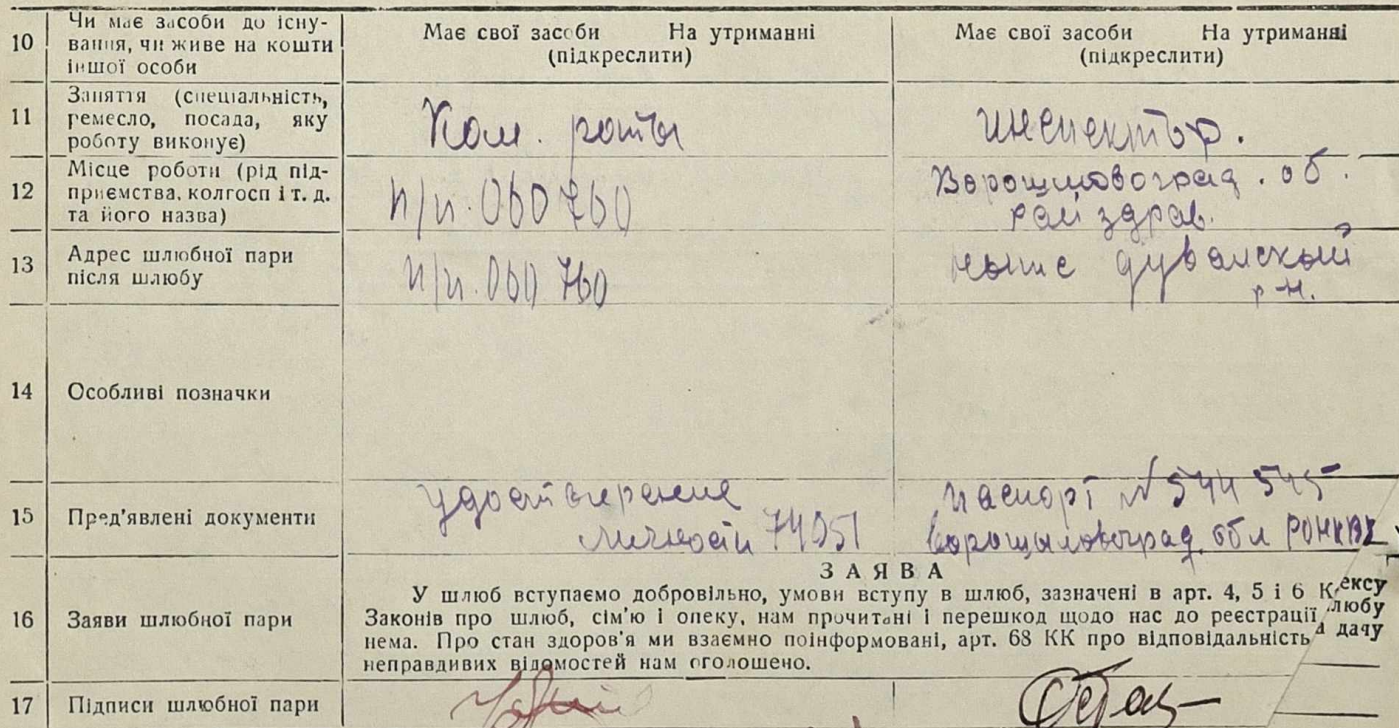 10 Чи має засоби до існу-
вання, чи живе на кошти
іншої особи
Має свої засоби На утриманні
(підкреслити)
Має свої засоби На утриманні
(підкреслити)
11 Заняття (спеціальність,
ремесло, посада, яку
роботу виконує)
Ком. роты
инспектор.
12 Місце роботи (рід під-
приємства, колгосп і т. д.
та його назва)
п/п. 060760
Ворошиловоград. об.
рай здрав.
13 Адрес шлюбної пари
після шлюбу
п/п. 060760
р-н.
14 Особливі позначки
15 Пред'явлені документи
удостверение
личности 74951
паспорт № 544 545
Ворошыловоград. обл РОНКВД
ЗАЯВА
16 Заяви шлюбної пари
У шлюб вступаємо добровільно, умови вступу в шлюб, зазначені в арт. 4, 5 і 6 К ексу
Законів про шлюб, сім'ю і опеку, нам прочитані і перешкод щодо нас до реєстрації любу
нема. Про стан здоров'я ми взаємно поінформовані, арт. 68 КК про відповідальність а дачу
неправдивих відомостей нам оголошено.
17 Підписи шлюбної пари